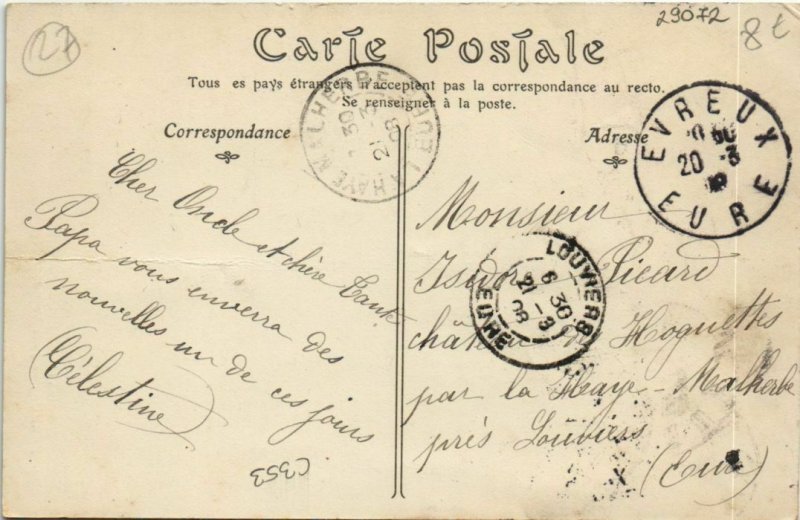 27
29072
8€
Carte Postale
Tous es pays étrangers n'acceptent pas la correspondance au recto.
Se renseigner à la poste.
Correspondance
Adresse
LA HAYE MALHERBE EURE
30
21 3
08
EVREUX
20 -3
EURE
Cher Oncle et chère Tante
Papa vous enverra des
nouvelles un de ces jours
(Célestine)
C353
LOUVIERS
6 30
21 -3
08
EURE
Monsieur
Isidore Picard
château des Hoguettes
par la Haye-Malherbe
près Louviers
(Eure)